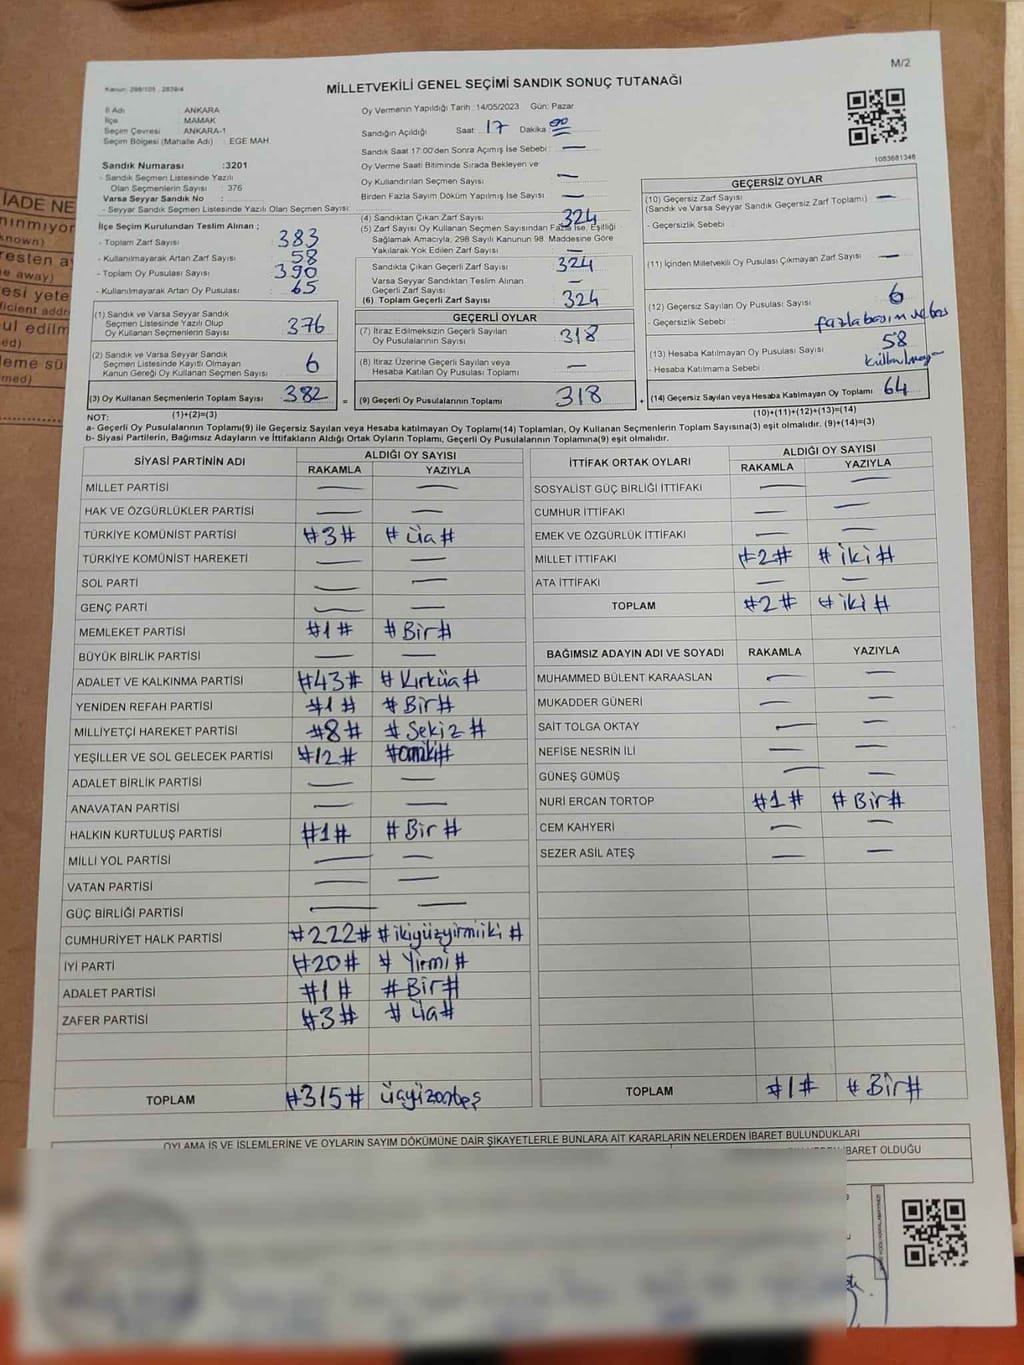 M/2
Kanun: 298/105, 2839/4
MİLLETVEKİLİ GENEL SEÇİMİ SANDIK SONUÇ TUTANAĞI
İl Adı : ANKARA
İlçe : MAMAK
Seçim Çevresi : ANKARA-1
Seçim Bölgesi (Mahalle Adı) : EGE MAH
Sandık Numarası : 3201
- Sandık Seçmen Listesinde Yazılı
Olan Seçmenlerin Sayısı : 376
Varsa Seyyar Sandık No :
- Seyyar Sandık Seçmen Listesinde Yazılı Olan Seçmen Sayısı:
İlçe Seçim Kurulundan Teslim Alınan ;
- Toplam Zarf Sayısı : 383
- Kullanılmayarak Artan Zarf Sayısı : 58
- Toplam Oy Pusulası Sayısı : 390
- Kullanılmayarak Artan Oy Pusulası : 65
(1) Sandık ve Varsa Seyyar Sandık
Seçmen Listesinde Yazılı Olup
Oy Kullanan Seçmenlerin Sayısı : 376
(2) Sandık ve Varsa Seyyar Sandık
Seçmen Listesinde Kayıtlı Olmayan
Kanun Gereği Oy Kullanan Seçmen Sayısı : 6
(3) Oy Kullanan Seçmenlerin Toplam Sayısı : 382 =
Oy Vermenin Yapıldığı Tarih : 14/05/2023 Gün: Pazar
Sandığın Açıldığı Saat : 17 Dakika : 00
Sandık Saat 17:00'den Sonra Açımış İse Sebebi : —
Oy Verme Saati Bitiminde Sırada Bekleyen ve
Oy Kullandırılan Seçmen Sayısı : —
Birden Fazla Sayım Döküm Yapılmış İse Sayısı : —
(4) Sandıktan Çıkan Zarf Sayısı : 324
(5) Zarf Sayısı Oy Kullanan Seçmen Sayısından Fazla İse, Eşitliği
Sağlamak Amacıyla, 298 Sayılı Kanunun 98. Maddesine Göre
Yakılarak Yok Edilen Zarf Sayısı : —
Sandıkta Çıkan Geçerli Zarf Sayısı : 324
Varsa Seyyar Sandıktan Teslim Alınan
Geçerli Zarf Sayısı : —
(6) Toplam Geçerli Zarf Sayısı : 324
GEÇERLİ OYLAR
(7) İtiraz Edilmeksizin Geçerli Sayılan
Oy Pusulalarının Sayısı : 318
(8) İtiraz Üzerine Geçerli Sayılan veya
Hesaba Katılan Oy Pusulası Toplamı : —
(9) Geçerli Oy Pusulalarının Toplamı : 318 +
1083681346
GEÇERSİZ OYLAR
(10) Geçersiz Zarf Sayısı
(Sandık ve Varsa Seyyar Sandık Geçersiz Zarf Toplamı) : —
- Geçersizlik Sebebi :
(11) İçinden Milletvekili Oy Pusulası Çıkmayan Zarf Sayısı : —
(12) Geçersiz Sayılan Oy Pusulası Sayısı : 6
- Geçersizlik Sebebi : fazla basım ve boş
(13) Hesaba Katılmayan Oy Pusulası Sayısı : 58
- Hesaba Katılmama Sebebi :
(14) Geçersiz Sayılan veya Hesaba Katılmayan Oy Toplamı : 64
NOT: (1)+(2)=(3)
(10)+(11)+(12)+(13)=(14)
a- Geçerli Oy Pusulalarının Toplamı(9) ile Geçersiz Sayılan veya Hesaba katılmayan Oy Toplamı(14) Toplamları, Oy Kullanan Seçmenlerin Toplam Sayısına(3) eşit olmalıdır. (9)+(14)=(3)
b- Siyasi Partilerin, Bağımsız Adayların ve İttifakların Aldığı Ortak Oyların Toplamı, Geçerli Oy Pusulalarının Toplamına(9) eşit olmalıdır.
SİYASİ PARTİNİN ADI ALDIĞI OY SAYISI
RAKAMLA YAZIYLA
MİLLET PARTİSİ — —
HAK VE ÖZGÜRLÜKLER PARTİSİ — —
TÜRKİYE KOMÜNİST PARTİSİ #3# #üç#
TÜRKİYE KOMÜNİST HAREKETİ — —
SOL PARTİ — —
GENÇ PARTİ — —
MEMLEKET PARTİSİ #1# #Bir#
BÜYÜK BİRLİK PARTİSİ — —
ADALET VE KALKINMA PARTİSİ #43# #Kırküç#
YENİDEN REFAH PARTİSİ #1# #Bir#
MİLLİYETÇİ HAREKET PARTİSİ #8# #Sekiz#
YEŞİLLER VE SOL GELECEK PARTİSİ #12# #oniki#
ADALET BİRLİK PARTİSİ — —
ANAVATAN PARTİSİ — —
HALKIN KURTULUŞ PARTİSİ #1# #Bir#
MİLLİ YOL PARTİSİ — —
VATAN PARTİSİ — —
GÜÇ BİRLİĞİ PARTİSİ — —
CUMHURİYET HALK PARTİSİ #222# #ikiyüzyirmiiki#
İYİ PARTİ #20# #Yirmi#
ADALET PARTİSİ #1# #Bir#
ZAFER PARTİSİ #3# #üç#
TOPLAM #315# üçyüzonbeş
İTTİFAK ORTAK OYLARI ALDIĞI OY SAYISI
RAKAMLA YAZIYLA
SOSYALİST GÜÇ BİRLİĞİ İTTİFAKI — —
CUMHUR İTTİFAKI — —
EMEK VE ÖZGÜRLÜK İTTİFAKI — —
MİLLET İTTİFAKI #2# #iki#
ATA İTTİFAKI — —
TOPLAM #2# #iki#
BAĞIMSIZ ADAYIN ADI VE SOYADI RAKAMLA YAZIYLA
MUHAMMED BÜLENT KARAASLAN — —
MUKADDER GÜNERİ — —
SAİT TOLGA OKTAY — —
NEFİSE NESRİN İLİ — —
GÜNEŞ GÜMÜŞ — —
NURİ ERCAN TORTOP #1# #Bir#
CEM KAHYERİ — —
SEZER ASİL ATEŞ — —
TOPLAM #1# #Bir#
OYLAMA İŞ VE İŞLEMLERİNE VE OYLARIN SAYIM DÖKÜMÜNE DAİR ŞİKAYETLERLE BUNLARA AİT KARARLARIN NELERDEN İBARET BULUNDUKLARI
İBARET OLDUĞU